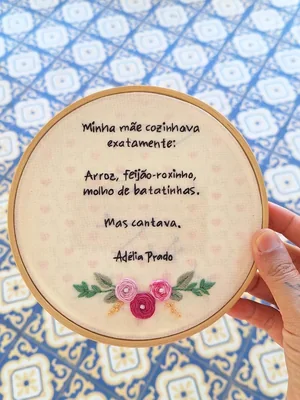 Minha mãe cozinhava
exatamente:
Arroz, feijão-roxinho,
molho de batatinhas.
Mas cantava.
Adélia Prado